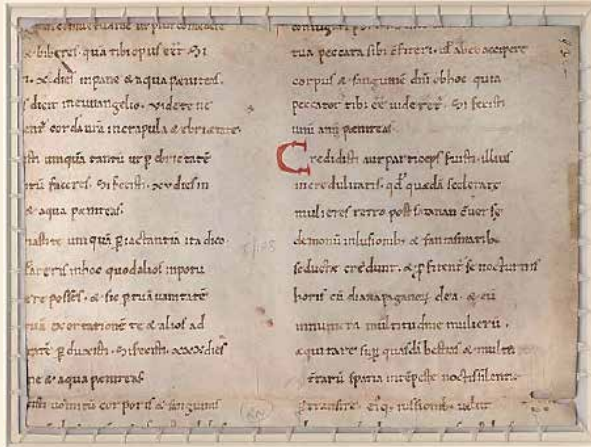 & biberes. quā tibi opus eēt. Si
dies in pane & aqua pęniteas.
dicit in euuangelio. videte ne
corda vrā in crapula & ebrietate
umquā tantū ut ꝑ ebrietatē
faceres. Si fecisti. xv dies in
& aqua pęniteas.
umquā ꝑ iactantia ita dico
in hoc quod alios in potu
posses. & sic ꝑ tuā vanitatē
exortationē te & alios ad
ꝑduxisti. Si fecisti. xxx dies
& aqua pęniteas
uomitū corporis & sanguinis
tua peccata sibi ɔfiteri. ut ab eo acciperes
corpus & sanguinē dn̄i ob hoc quia
peccator tibi eē videret. Si fecisti
unū annū pęniteas.
Credidisti aut particeps fuisti illius
incredulitatis. qd̄ quędā sceleratę
mulieres retro post satanan ɔuersę
demonū inlusionib; & fantasmatib;
seductę credunt. & ꝓfitent se nocturnis
horis cū diana paganorū dea. & cū
innumera multitudine mulierū.
equitare sup quasdā bestias & multa
terrarū spatia intēpestę noctis silentio
ꝑtransire. eiq; iussionib; velut